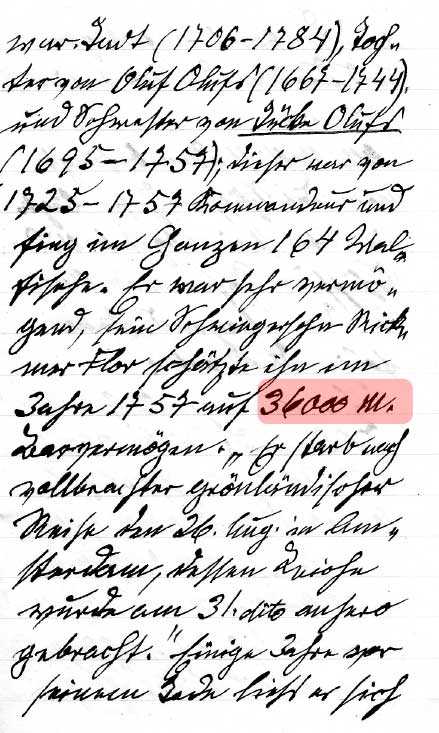 war Tadt (1706-1784), Toch-
ter von Oluf Olufs (1667-1744),
und Schwester von Jücke Olufs
(1695-1757); dieser war von
1725-1757 Kommandeur und
fing im Ganzen 164 Wal-
fische. Er war sehr vermö-
gend, sein Schwiegersohn Rick-
mer Flor schätzte ihn im
Jahre 1757 auf 36000 M.
Barvermögen. „Er starb nach
vollbrachter grönländischer
Reise den 26. Aug. in Am-
sterdam, dessen Leiche
wurde am 31. dito anhero
gebracht." Einige Jahre vor
seinem Tode ließ er sich